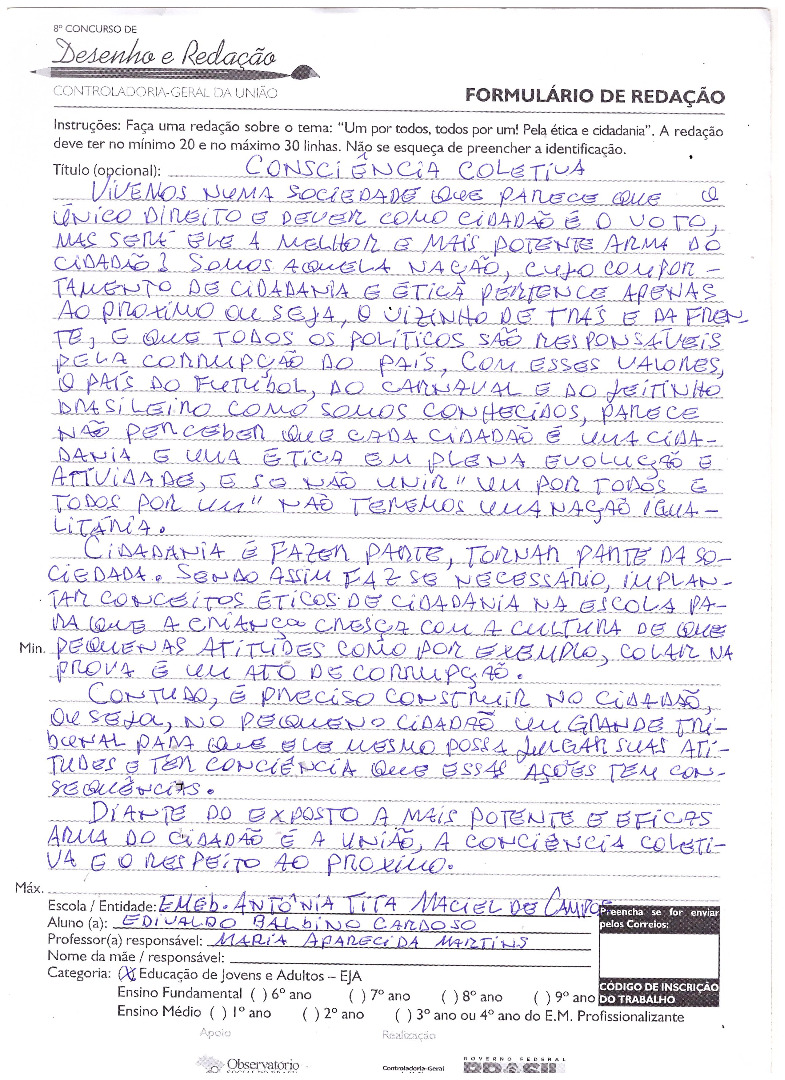 8º CONCURSO DE
Desenho e Redação
CONTROLADORIA-GERAL DA UNIÃO
FORMULÁRIO DE REDAÇÃO
Instruções: Faça uma redação sobre o tema: “Um por todos, todos por um! Pela ética e cidadania”. A redação
deve ter no mínimo 20 e no máximo 30 linhas. Não se esqueça de preencher a identificação.
Título (opcional): CONSCIÊNCIA COLETIVA
VIVEMOS NUMA SOCIEDADE QUE PARECE QUE O
ÚNICO DIREITO E DEVER COMO CIDADÃO É O VOTO,
MAS SERÁ ELE A MELHOR E MAIS POTENTE ARMA DO
CIDADÃO? SOMOS AQUELA NAÇÃO, CUJO COMPOR-
TAMENTO DE CIDADANIA E ÉTICA PERTENCE APENAS
AO PRÓXIMO OU SEJA, O VIZINHO DE TRÁS E DA FREN-
TE, E QUE TODOS OS POLÍTICOS SÃO RESPONSÁVEIS
PELA CORRUPÇÃO DO PAÍS, COM ESSES VALORES,
O PAÍS DO FUTEBOL, DO CARNAVAL E DO JEITINHO
BRASILEIRO COMO SOMOS CONHECIDOS, PARECE
NÃO PERCEBER QUE CADA CIDADÃO É UMA CIDA-
DANIA E UMA ÉTICA EM PLENA EVOLUÇÃO E
ATIVIDADE, E SE NÃO UNIR "UM POR TODOS E
TODOS POR UM" NÃO TEREMOS UMA NAÇÃO IGUA-
LITÁRIA.
CIDADANIA É FAZER PARTE, TORNAR PARTE DA SO-
CIEDADA. SENDO ASSIM FAZ SE NECESSÁRIO, IMPLAN-
TAR CONCEITOS ÉTICOS DE CIDADANIA NA ESCOLA PA-
RA QUE A CRIANÇA CRESÇA COM A CULTURA DE QUE
Min. PEQUENAS ATITUDES COMO POR EXEMPLO, COLAR NA
PROVA É UM ATO DE CORRUPÇÃO.
CONTUDO, É PRECISO CONSTRUIR NO CIDADÃO,
OU SEJA, NO PEQUENO CIDADÃO UM GRANDE TRI-
BUNAL PARA QUE ELE MESMO POSSA JULGAR SUAS ATI-
TUDES E TER CONCIÊNCIA QUE ESSAS AÇÕES TEM CON-
SEQUÊNCIAS.
DIANTE DO EXPOSTO A MAIS POTENTE E EFICAS
ARMA DO CIDADÃO É A UNIÃO, A CONCIÊNCIA COLETI-
VA E O RESPEITO AO PROXIMO.
Máx.
Escola / Entidade: EMEB. ANTÔNIA TITA MACIEL DE CAMPOS
Aluno (a): EDIVALDO BALBINO CARDOSO
Professor(a) responsável: MARIA APARECIDA MARTINS
Nome da mãe / responsável:
Preencha se for enviar
pelos Correios:
CÓDIGO DE INSCRIÇÃO
DO TRABALHO
Categoria: (X) Educação de Jovens e Adultos – EJA
Ensino Fundamental ( ) 6º ano ( ) 7º ano ( ) 8º ano ( ) 9º ano
Ensino Médio ( ) 1º ano ( ) 2º ano ( ) 3º ano ou 4º ano do E.M. Profissionalizante
Apoio
Realização
Observatorio
Controladoria-Geral
GOVERNO FEDERAL
BRASIL